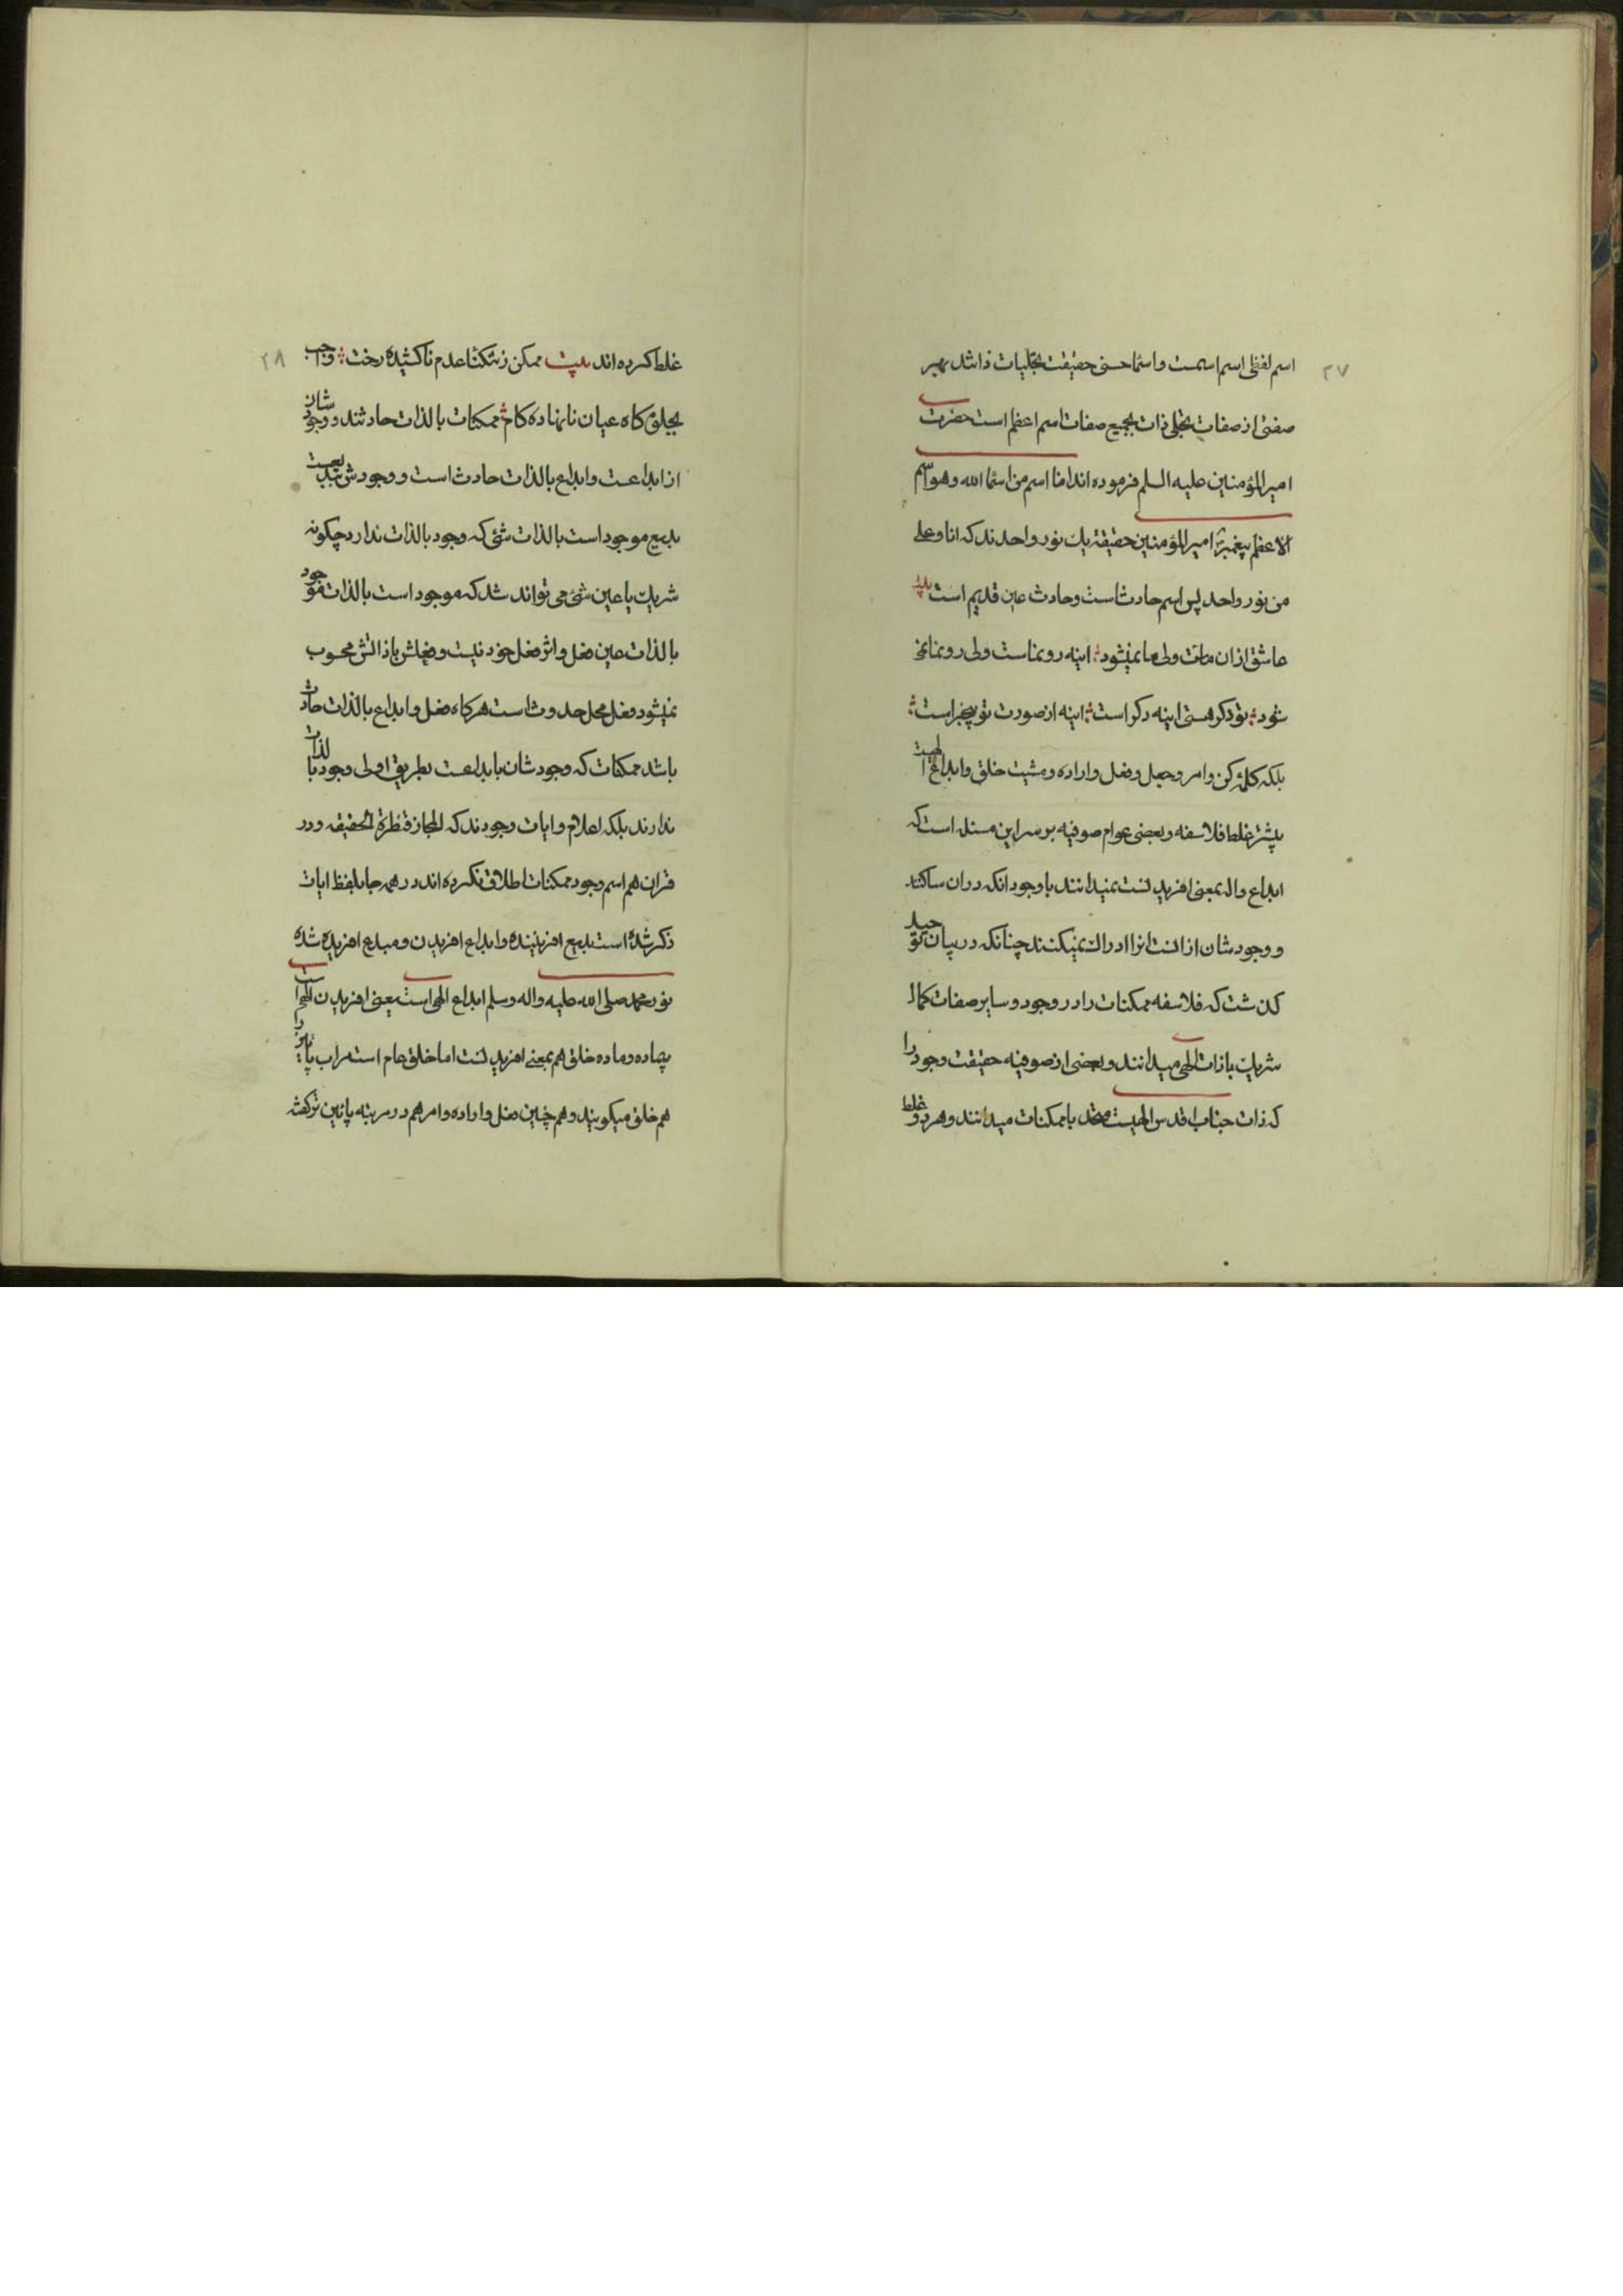 ۲۷
اسم لفظی اسم اسمست و اسما حسنی حقیقت تجلیات ذاتند بهر
صفتی از صفات تجلی ذات بجمیع صفات اسم اعظم است حضرت
امیرالمؤمنین علیه السلم فرموده اند انا اسم من اسما الله وهو اسم
الاعظم پیغمبر امیرالمؤمنین حقیقة یك نور واحدند که انا وعلی
من نور واحد پس اسم حادثاست وحادث عین قدیم است
عاشق از ان مافت ولی ما نمیشود اینه رو نماست ولی رو نما نمی
شود تو دکر هستی اینه دکر است اینه از صورت تو بیخبر است
بلکه کلمۀ کن وامر وجعل وفعل واراده ومشیت خلق وابداع الهیت
بیشتر غلط فلاسفه وبعضی عوام صوفیه بر سر این مسئله است که
ابداع واله بمعنی افریدنست نمیدانند با وجود انکه در ان ساکنند
و وجودشان از انست انرا ادراك نمیکنند چنانکه در بیان توحید
کذشت که فلاسفه ممکنات را در وجود وسایر صفات کمال
شریك با ذات الهی میدانند وبعضی از صوفیه حقیقت وجود را
که ذات جناب اقدس الهیست متحد با ممکنات میدانند وهر دو غلط
۲۸
غلط کرده اند بیت ممکن ز تنکنا عدم نا کشیده رخت واجب
بجلوه کاه عیان نا نهاده کام ممکنات بالذات حادثند و وجودشان
از ابداعست وابداع بالذات حادث است و وجودش ببدیعست
بدیع موجود است بالذات شئ که وجود بالذات ندارد چکونه
شریك یا عین شئ می تواند شد که موجود است بالذات موجود
بالذات عین فعل واثر فعل خود نیست وفعلش با ذاتش محسوب
نمیشود فعل محل حدوث است هرکاه فعل وابداع بالذات حادث
باشد ممکنات که وجودشان بابداعست بطریق اولی وجود بالذات
ندارند بلکه اعلام وایات وجودند که المجاز قنطرة الحقیقه ودر
قران هم اسم وجود ممکنات اطلاق نکرده اند در همه جا بلفظ ایات
ذکر شده است بدیع افریننده وابداع افریدن ومبدع افریده شده
نور محمد صلی الله علیه واله وسلم ابداع الهی است یعنی افریدن الهی است
بیماده وماده خلق هم بمعنی افریدنست اما خلق عام است مراتب پایین را
هم خلق میکویند وهم چنین فعل واراده وامر هم در مرتبه پائین تر کفته